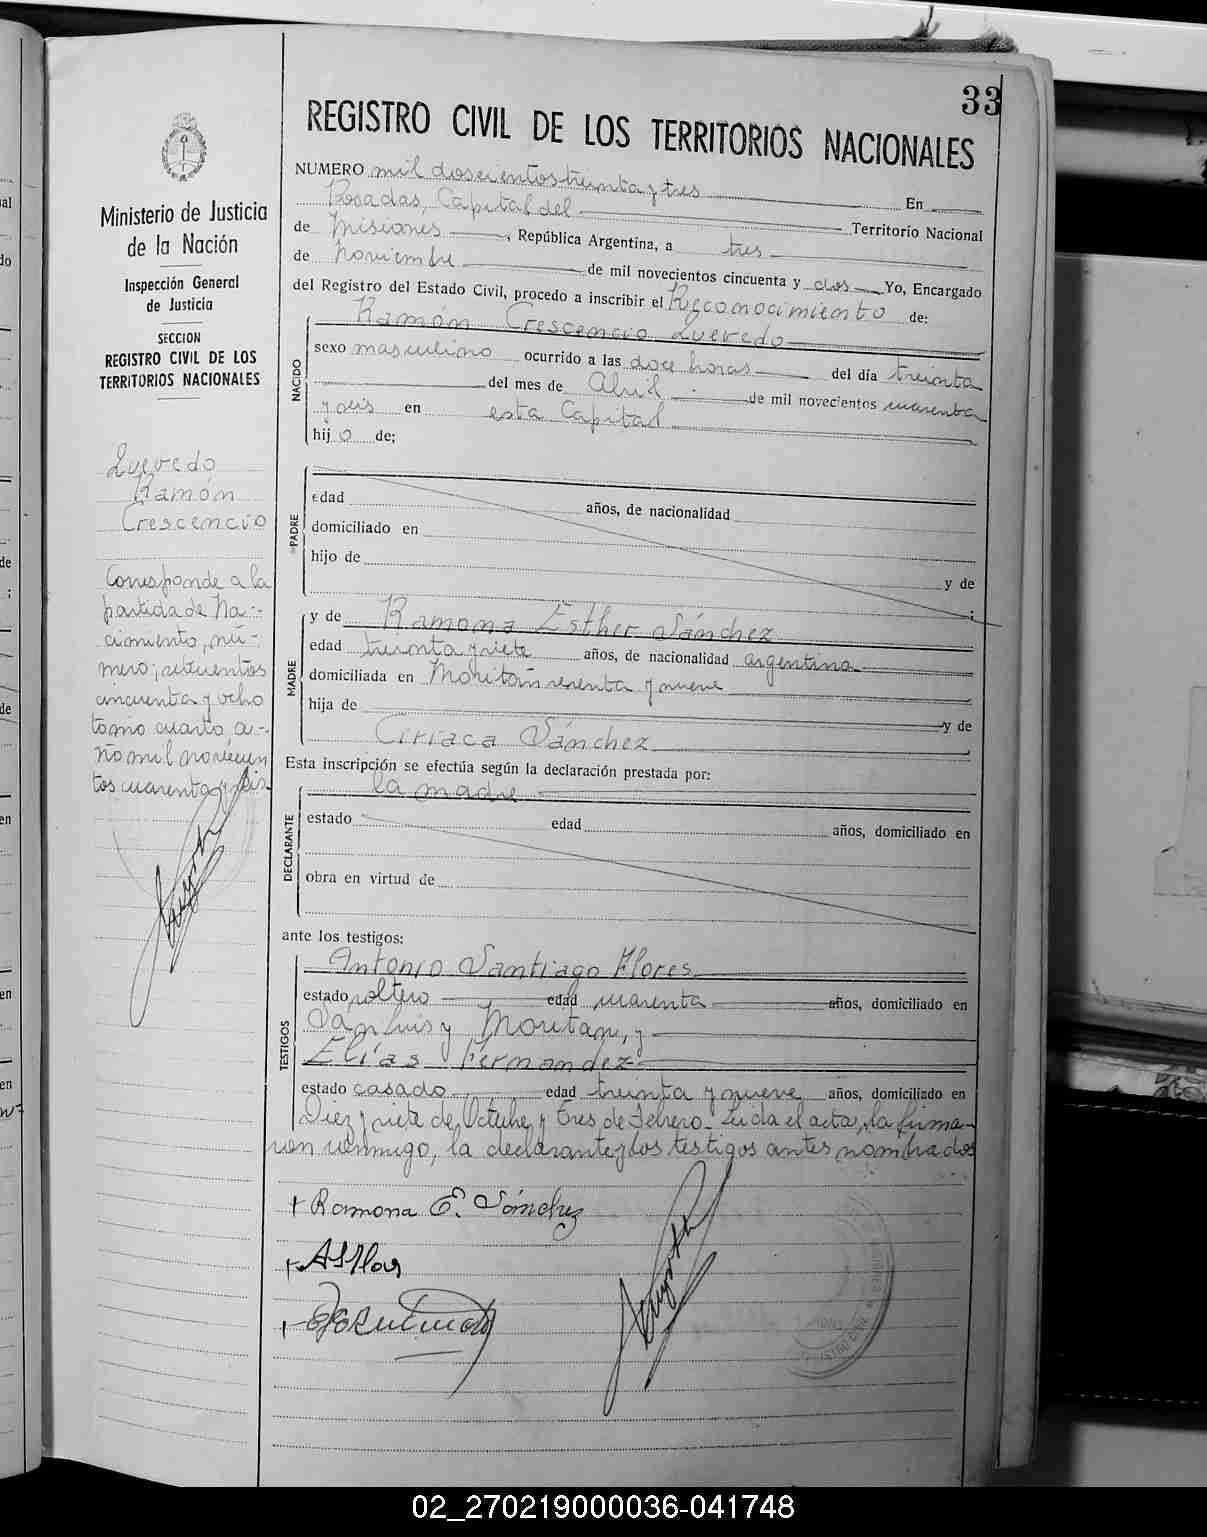 33
REGISTRO CIVIL DE LOS TERRITORIOS NACIONALES
Ministerio de Justicia
de la Nación
Inspección General
de Justicia
SECCION
REGISTRO CIVIL DE LOS
TERRITORIOS NACIONALES
Quevedo
Ramón
Crescencio
Corresponde a la
partida de Na-
cimiento, nú-
mero; setecientos
cincuenta y ocho
tomo cuarto, a-
ño mil novecien
tos cuarenta y seis
NUMERO mil doscientos treinta y tres En
Posadas, Capital del Territorio Nacional
de Misiones, República Argentina, a tres
de Noviembre de mil novecientos cincuenta y dos Yo, Encargado
del Registro del Estado Civil, procedo a inscribir el Reconocimiento de:
NACIDO
Ramón Crescencio Quevedo
sexo masculino ocurrido a las doce horas del día treinta
del mes de Abril de mil novecientos cuarenta
y seis en esta Capital
hijo de;
PADRE
edad años, de nacionalidad
domiciliado en
hijo de
y de
;
MADRE
y de Ramona Esther Sánchez
edad treinta y siete años, de nacionalidad argentina
domiciliada en Moritán sesenta y nueve
hija de y de
Ciriaca Sánchez
Esta inscripción se efectúa según la declaración prestada por:
DECLARANTE
la madre
estado edad años, domiciliado en
obra en virtud de
ante los testigos:
TESTIGOS
Antonio Santiago Flores
estado soltero edad cuarenta años, domiciliado en
San Luis y Moritan, y
Elías Fernandez
estado casado edad treinta y nueve años, domiciliado en
Diez y siete de Octubre y Tres de Febrero. Leída el acta, la firma-
ron conmigo, la declarante y los testigos antes nombrados
Ramona E. Sánchez
02_270219000036-041748